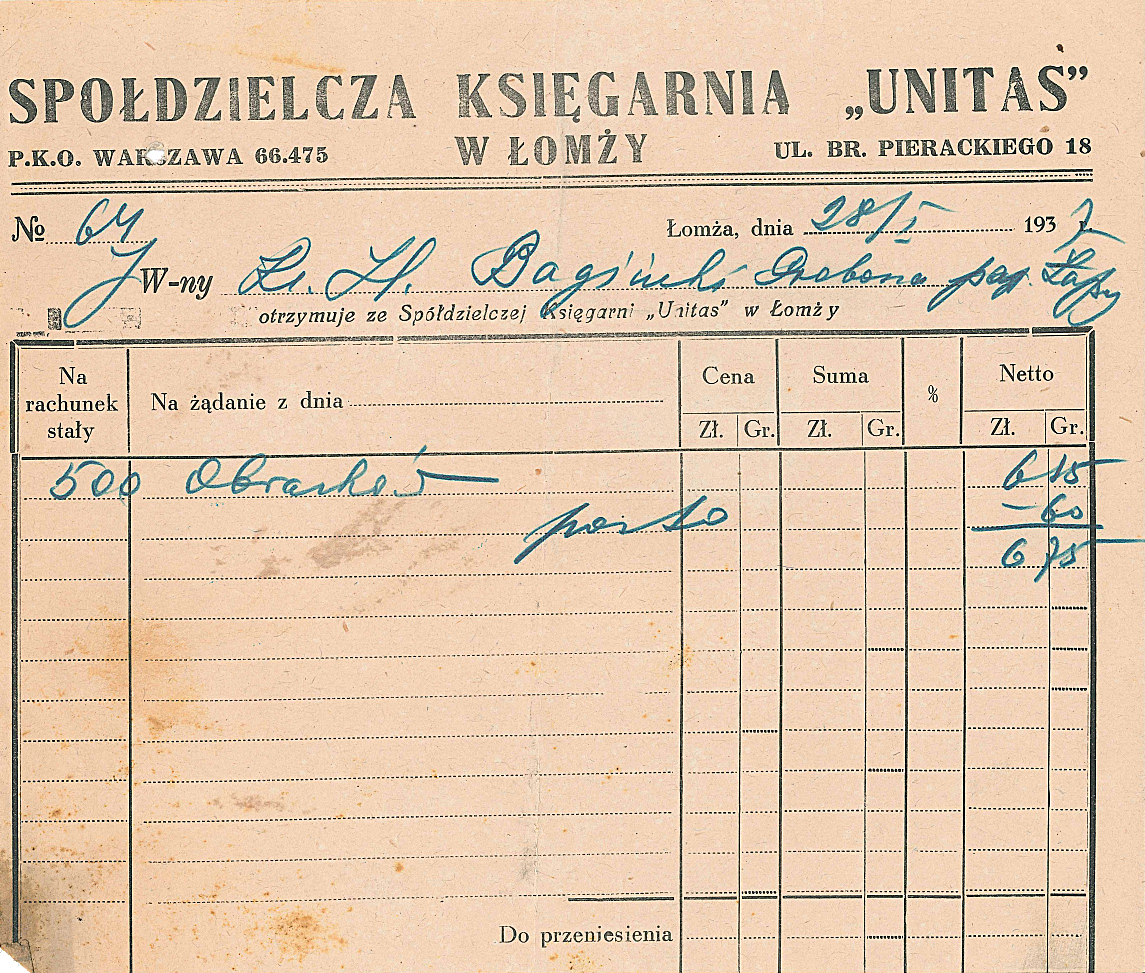 SPOŁDZIELCZA KSIĘGARNIA „UNITAS”
P.K.O. WARSZAWA 66.475 W ŁOMŻY UL. BR. PIERACKIEGO 18
№ 64 Łomża, dnia 28/I 1937 r.
JW-ny Ks. St. Bagiński poz. Łapy
otrzymuje ze Spółdzielczej Księgarni „Unitas” w Łomży
Na rachunek stały Na żądanie z dnia Cena Suma % Netto
Zł. Gr. Zł. Gr. Zł. Gr.
500 Obrazków 6 15
porto - 60
6 75
Do przeniesienia